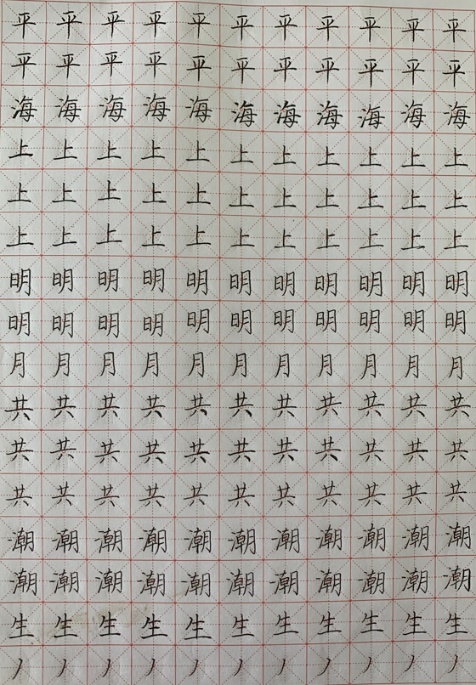 平平平平平平平平平平平
平平平平平平平平平平平
海海海海海海海海海海海
上上上上上上上上上上上
上上上上上上上上上上上
上上上上上上上上上上上
明明明明明明明明明明明
明明明明明明明明明明明
月月月月月月月月月月月
共共共共共共共共共共共
共共共共共共共共共共共
共共共共共共共共共共共
潮潮潮潮潮潮潮潮潮潮潮
潮潮潮潮潮潮潮潮潮潮潮
生生生生生生生生生生生
丿丿丿丿丿丿丿丿丿丿丿